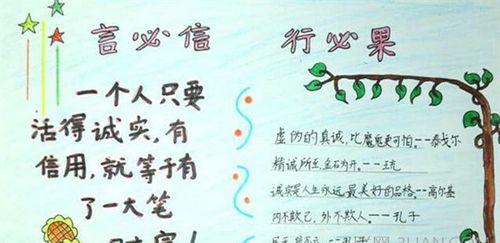 言必信 行必果
一个人只要
活得诚实,有
信用,就等于有
了一大笔
虚伪的真诚,比魔鬼更可怕。--泰戈尔
精诚所至,金石为开。--王充
诚实是人生永远最美好的品格。--高尔基
内不欺己,外不欺人。--孔子